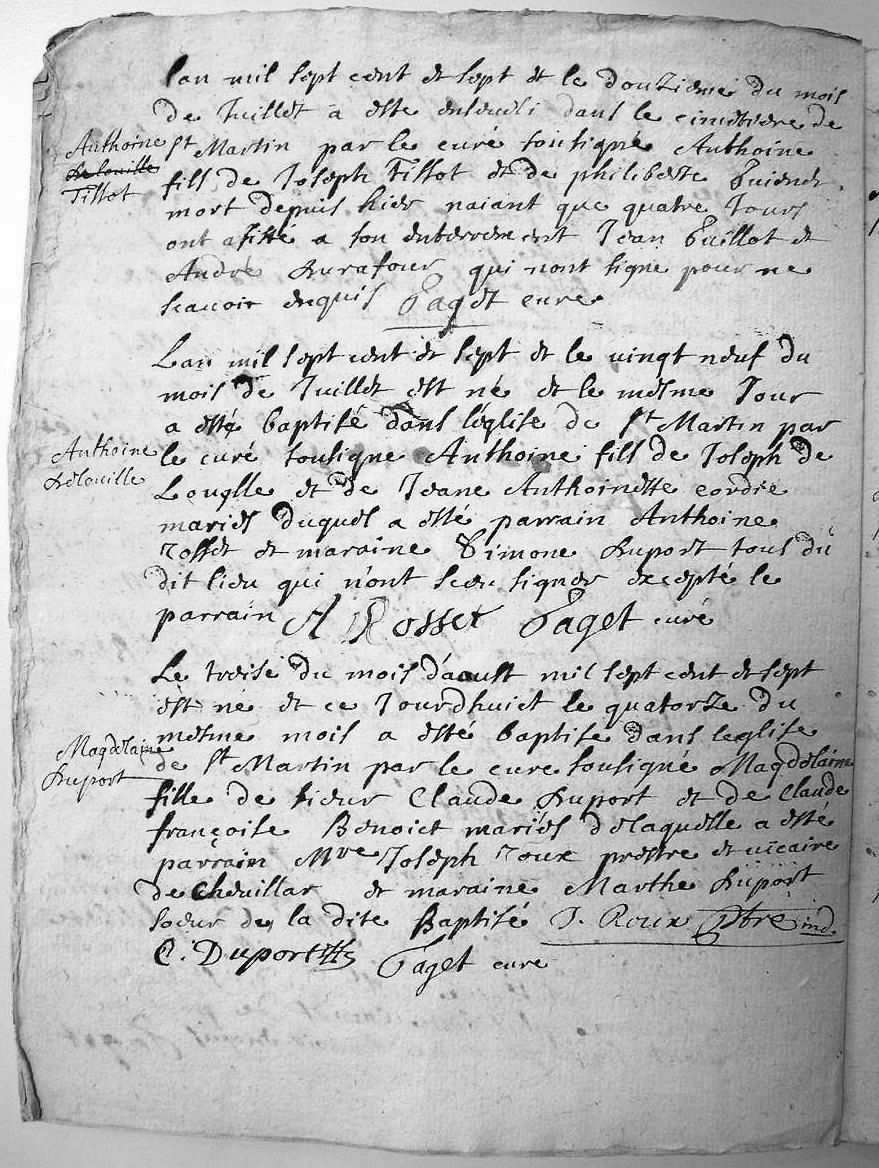 lan mil sept cent et sept et le douzieme du mois
de Juillet a este enseveli dans le cimetiere de
Anthoine
Delouille
Tillot
st Martin par le curé sousigné Anthoine
fils de Joseph Tillot et de philiberte
mort depuis hier naiant que quatre Jours
ont assisté a son enterrement Jean Guillot et
André Durafour qui nont signe pour ne
scauoir enquis Paget cure
Lan mil sept cent et sept et le vingt neuf du
mois de Juillet est né et le mesme Jour
a esté baptisé dans léglise de st Martin par
Anthoine
Delouille
le curé sousigne Anthoine fils de Joseph de
Louille et de Jeane Anthoinette cordie
mariés duquel a esté parrain Anthoine
rosset et maraine Simone Duport tous du
dit lieu qui n'ont sceu signer excepté le
parrain A Rosset Paget curé
Le troise du mois d'aoust mil sept cent et sept
est né et ce Jourdhuict le quatorze du
mesme mois a esté baptisé dans leglise
Magdelaine
Duport
de st Martin par le cure sousigné Magdelaine
fille de sieur Claude Duport et de Claude
françoise Benoict mariés delaquelle a esté
parrain Mre Joseph roux prestre et uicaire
de Cheuillar et maraine Marthe Duport
soeur de la dite Baptisé J. Roux ptre ind.
C. Duport Paget cure